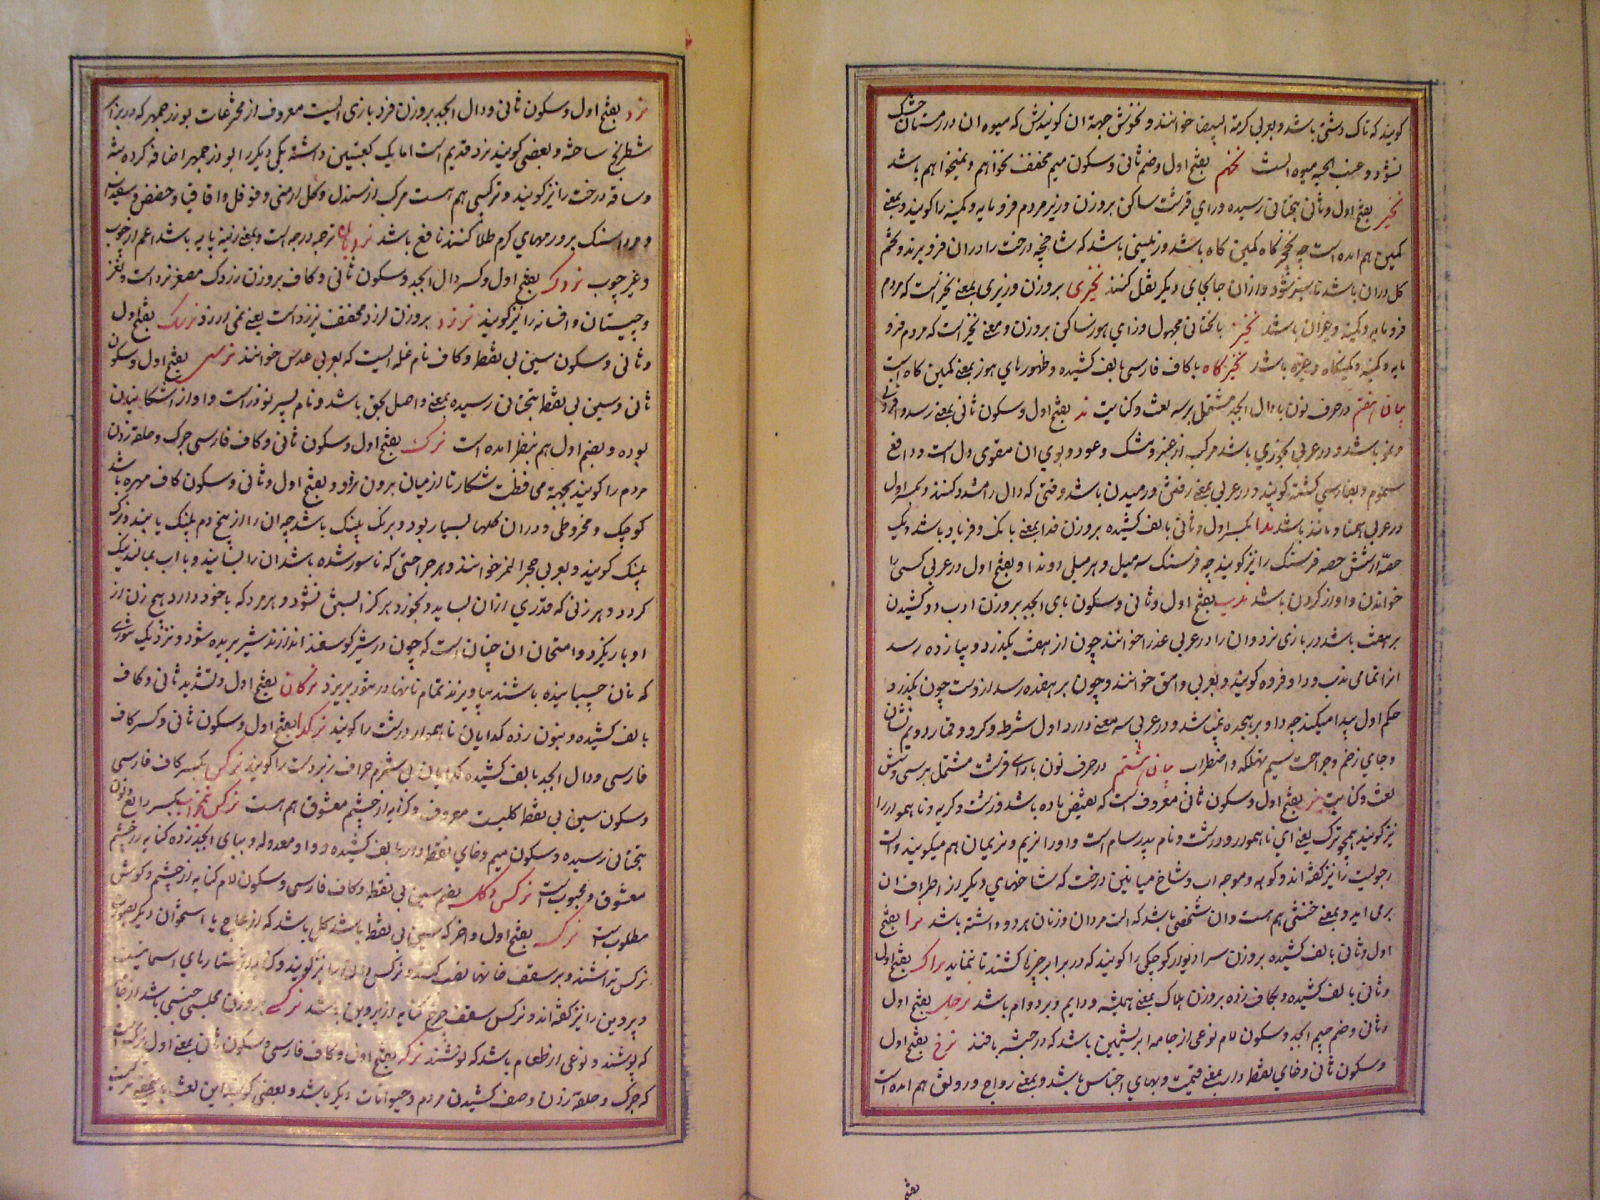 کویند که تاک دشتی باشد و بعربی کرمة البیضا خوانند و نخوش جهة ان کویندش که میوه ان در زمستان خشک
نشود و عنب الحیه میوه است نخنم بفتح اول وضم ثانی وسکون میم مخفف نخواهم ونمیخواهم باشد
نخیر بفتح اول وثانی بتحتانی رسیده ورای قرشت ساکن بروزن وزیر مردم فرومایه وکمینه را کویند وبمعنی
کمین هم امده است چه نخیزکاه کمین کاه باشد وزمینی باشد که شاخچه درخت را در ان فرو برند وتخم
کل در ان باشد تا سبز شود واز ان جا بجای دیکر نقل کنند نخیری بروزن وزیری بمعنی نخیر است که مردم
فرومایه وکمینه باشد نخیز با تحتانی مجهول وزای هوز ساکن بروزن ومعنی نخیر است که مردم فرو
مایه وکمینه وکمینکاه باشد نخیزکاه با کاف فارسی بالف کشیده وظهور های هوز بمعنی کمین کاه است
بیان هفتم در حرف نون با دال ابجد مشتمل بر سه لغت وکنایت ند بفتح اول وسکون ثانی بمعنی رسد وافزونی
ونمو باشد ودر عربی بخوری باشد مرکب از عنبر ومشک وعود وبوی ان مقوی دل است ودافع
سموم وبفارسی کشته کویند ودر عربی بمعنی رفتن ورمیدن باشد وقتی که دال را مشدد کنند وبکسر اول
در عربی همتا ومانند باشد ندا بکسر اول وثانی بالف کشیده بروزن فدا بمعنی بانک وفریاد باشد ویک
حصه از شش حصه فرسنک را نیز کویند چه فرسنک سه میل وهر میلی دو ندا وبفتح اول در عربی کسی را
خواندن واواز کردن باشد ندب بفتح اول وثانی وسکون بای ابجد بروزن ادب داو کشیدن
بر هفت باشد در بازی نرد وان را در عربی عذرا خوانند چون از هفت بکذرد وبیازده رسد
انرا تمامی ندب وداو فره کویند وبعربی وامق خوانند وچون بر هفده رسد از دست چون بکذرد
حکم اول پیدا میکند چه داو بر هیجده نمیباشد ودر عربی سه معنی دارد اول شرط وکرو وقمار دویم نشان
وجای زخم وجراحت سیم مهلکه واضطراب بیان هشتم در حرف نون با رای قرشت مشتمل بر سی وشش
لغت وکنایت نر بفتح اول وسکون ثانی معروف است که نقیض ماده باشد وزشت وکریه وناهموار را
نیز کویند همچو نرک یعنی ای ناهموار ودرشت ونام پدر سام است واو را نریم ونریمان هم میکویند والت
رجولیت را نیز کفته اند وکوهه وموجه اب وشاخ میانین درخت که شاخهای دیکر از اطراف ان
برمی اید وبمعنی خنثی هم هست وان شخصی باشد که الت مردان وزنان هر دو داشته باشد نرا بفتح
اول وثانی بالف کشیده بروزن سرا دیوار کوچکی را کویند که در برابر چیزی کشند تا ننماید نراک بفتح اول
وثانی بالف کشیده وبکاف زده بروزن هلاک بمعنی همیشه ودایم وبر دوام باشد نرجل بفتح اول
وثانی وضم جیم ابجد وسکون لام نوعی از جامه ابریشمین باشد که در حبشه بافند نرخ بفتح اول
وسکون ثانی وخای نقطه دار بمعنی قیمت وبهای اجناس باشد وبمعنی رواج ورونق هم امده است
نرد بفتح اول وسکون ثانی ودال ابجد بروزن فرد بازی ایست معروف از مخترعات بوزرجمهر که در برابر
شطرنج ساخته وبعضی کویند نرد قدیم است اما یک کعبتین داشته یکی دیکر را بوزرجمهر اضافه کرده
وساقه درخت را نیز کویند وترکیبی هم هست مرکب از صندل وکل ارمنی وفوفل واقاقیا وحضض وسفیداب
ومردار سنک بر ورمهای کرم طلا کنند نافع باشد نردبان ترجمه درجه است وبمعنی زینه پایه باشد اعم از چوب
وغیر چوب نردک بفتح اول وکسر دال ابجد وسکون ثانی وکاف بروزن زردک مصغر نرد است ولغز
وچیستان وافسانه را نیز کویند نرزد بروزن لرزد مخفف نیرزد است یعنی نمی ارزد نرسک بفتح اول
وثانی وسکون سین بی نقطه وکاف نام غله ایست که بعربی عدس خوانند نرسی بفتح اول وسکون
ثانی وسین بی نقطه بتحتانی رسیده بمعنی واصل بحق باشد ونام پسر نوذر است واو از اشکانیان
بوده وبضم اول هم بنظر امده است نرک بفتح اول وسکون ثانی وکاف فارسی جرک وحلقه زدن
مردم را کویند بجهة محافظت شکار تا از میان برون نرود وبفتح اول وثانی وسکون کاف مهره باشد
کوچک ومخروطی ودر ان کلها بسیار بود وبرنک پلنک باشد چه ان را از بیخ دم پلنک یابند ونرک
پلنک کویند وبعربی حجر النمر خوانند وهر جراحتی که ناسور شده باشد ان را بسایند وبا اب بمالند نیک
کردد وهر زنی که قدری از ان بساید وبخورد هرکز ابستن نشود وهر مرد که با خود دارد هیچ زن از
او بار نکیرد وامتحان ان چنان است که چون در شیر کوسفند اندازند شیر بریده شود ونزدیک تنوری
که نان چسبانیده باشند بیاویزند تمام نانها در تنور بریزد نرکان بفتح اول وتشدید ثانی وکاف
بالف کشیده وبنون زده کدایان ناهموار درشت را کویند نرکدا بفتح اول وسکون ثانی وکسر کاف
فارسی ودال ابجد بالف کشیده کدایان بی شرم حراف زبردست را کویند نرکس بکسر کاف فارسی
وسکون سین بی نقطه کلیست معروف وکنایه از چشم معشوق هم هست نرکس نیمخواب بکسر رابع ونون
بتحتانی رسیده وسکون میم وخای نقطه دار بالف کشیده وواو معدوله وببای ابجد زده کنایه از چشم
معشوق ومحبوب است نرکس وکل بضم سین بی نقطه وکاف فارسی وسکون لام کنایه از چشم وکوش
مطلوب است نرکسه بفتح اول واخر که سین بی نقطه باشد کل باشد که از عاج یا استخوان دیکر بصورت
نرکس تراشند وبر سقف خانها نصب کنند ونرکس را نیز کویند وکنایه از ستارهای اسمانیست
وپروین را نیز کفته اند ونرکس سقف چرخ کنایه از پروین باشد نرکسی بروزن مجلسی جنسی باشد از جامه
که پوشند ونوعی از طعام باشد که پوشند نرکه بفتح اول وکاف فارسی وسکون ثانی بمعنی اول نرک است
که جرک وحلقه زدن وصف کشیدن مردم وحیوانات دیکر باشد وبعضی کویند این لغت باین معنی ترکیست
بفتح